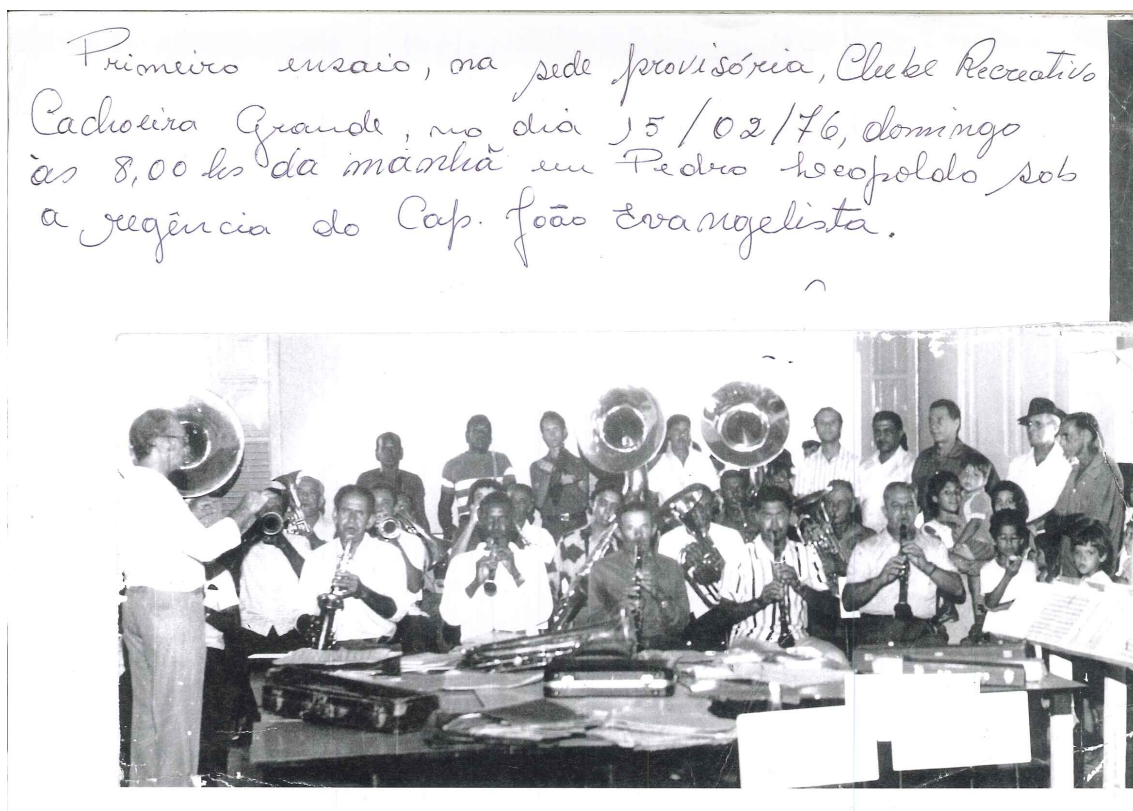 Primeiro ensaio, na sede provisória, Clube Recreativo
Cachoeira Grande, no dia 15/02/76, domingo
às 8,00 hs da manhã em Pedro Leopoldo sob
a regência do Cap. João Evangelista.